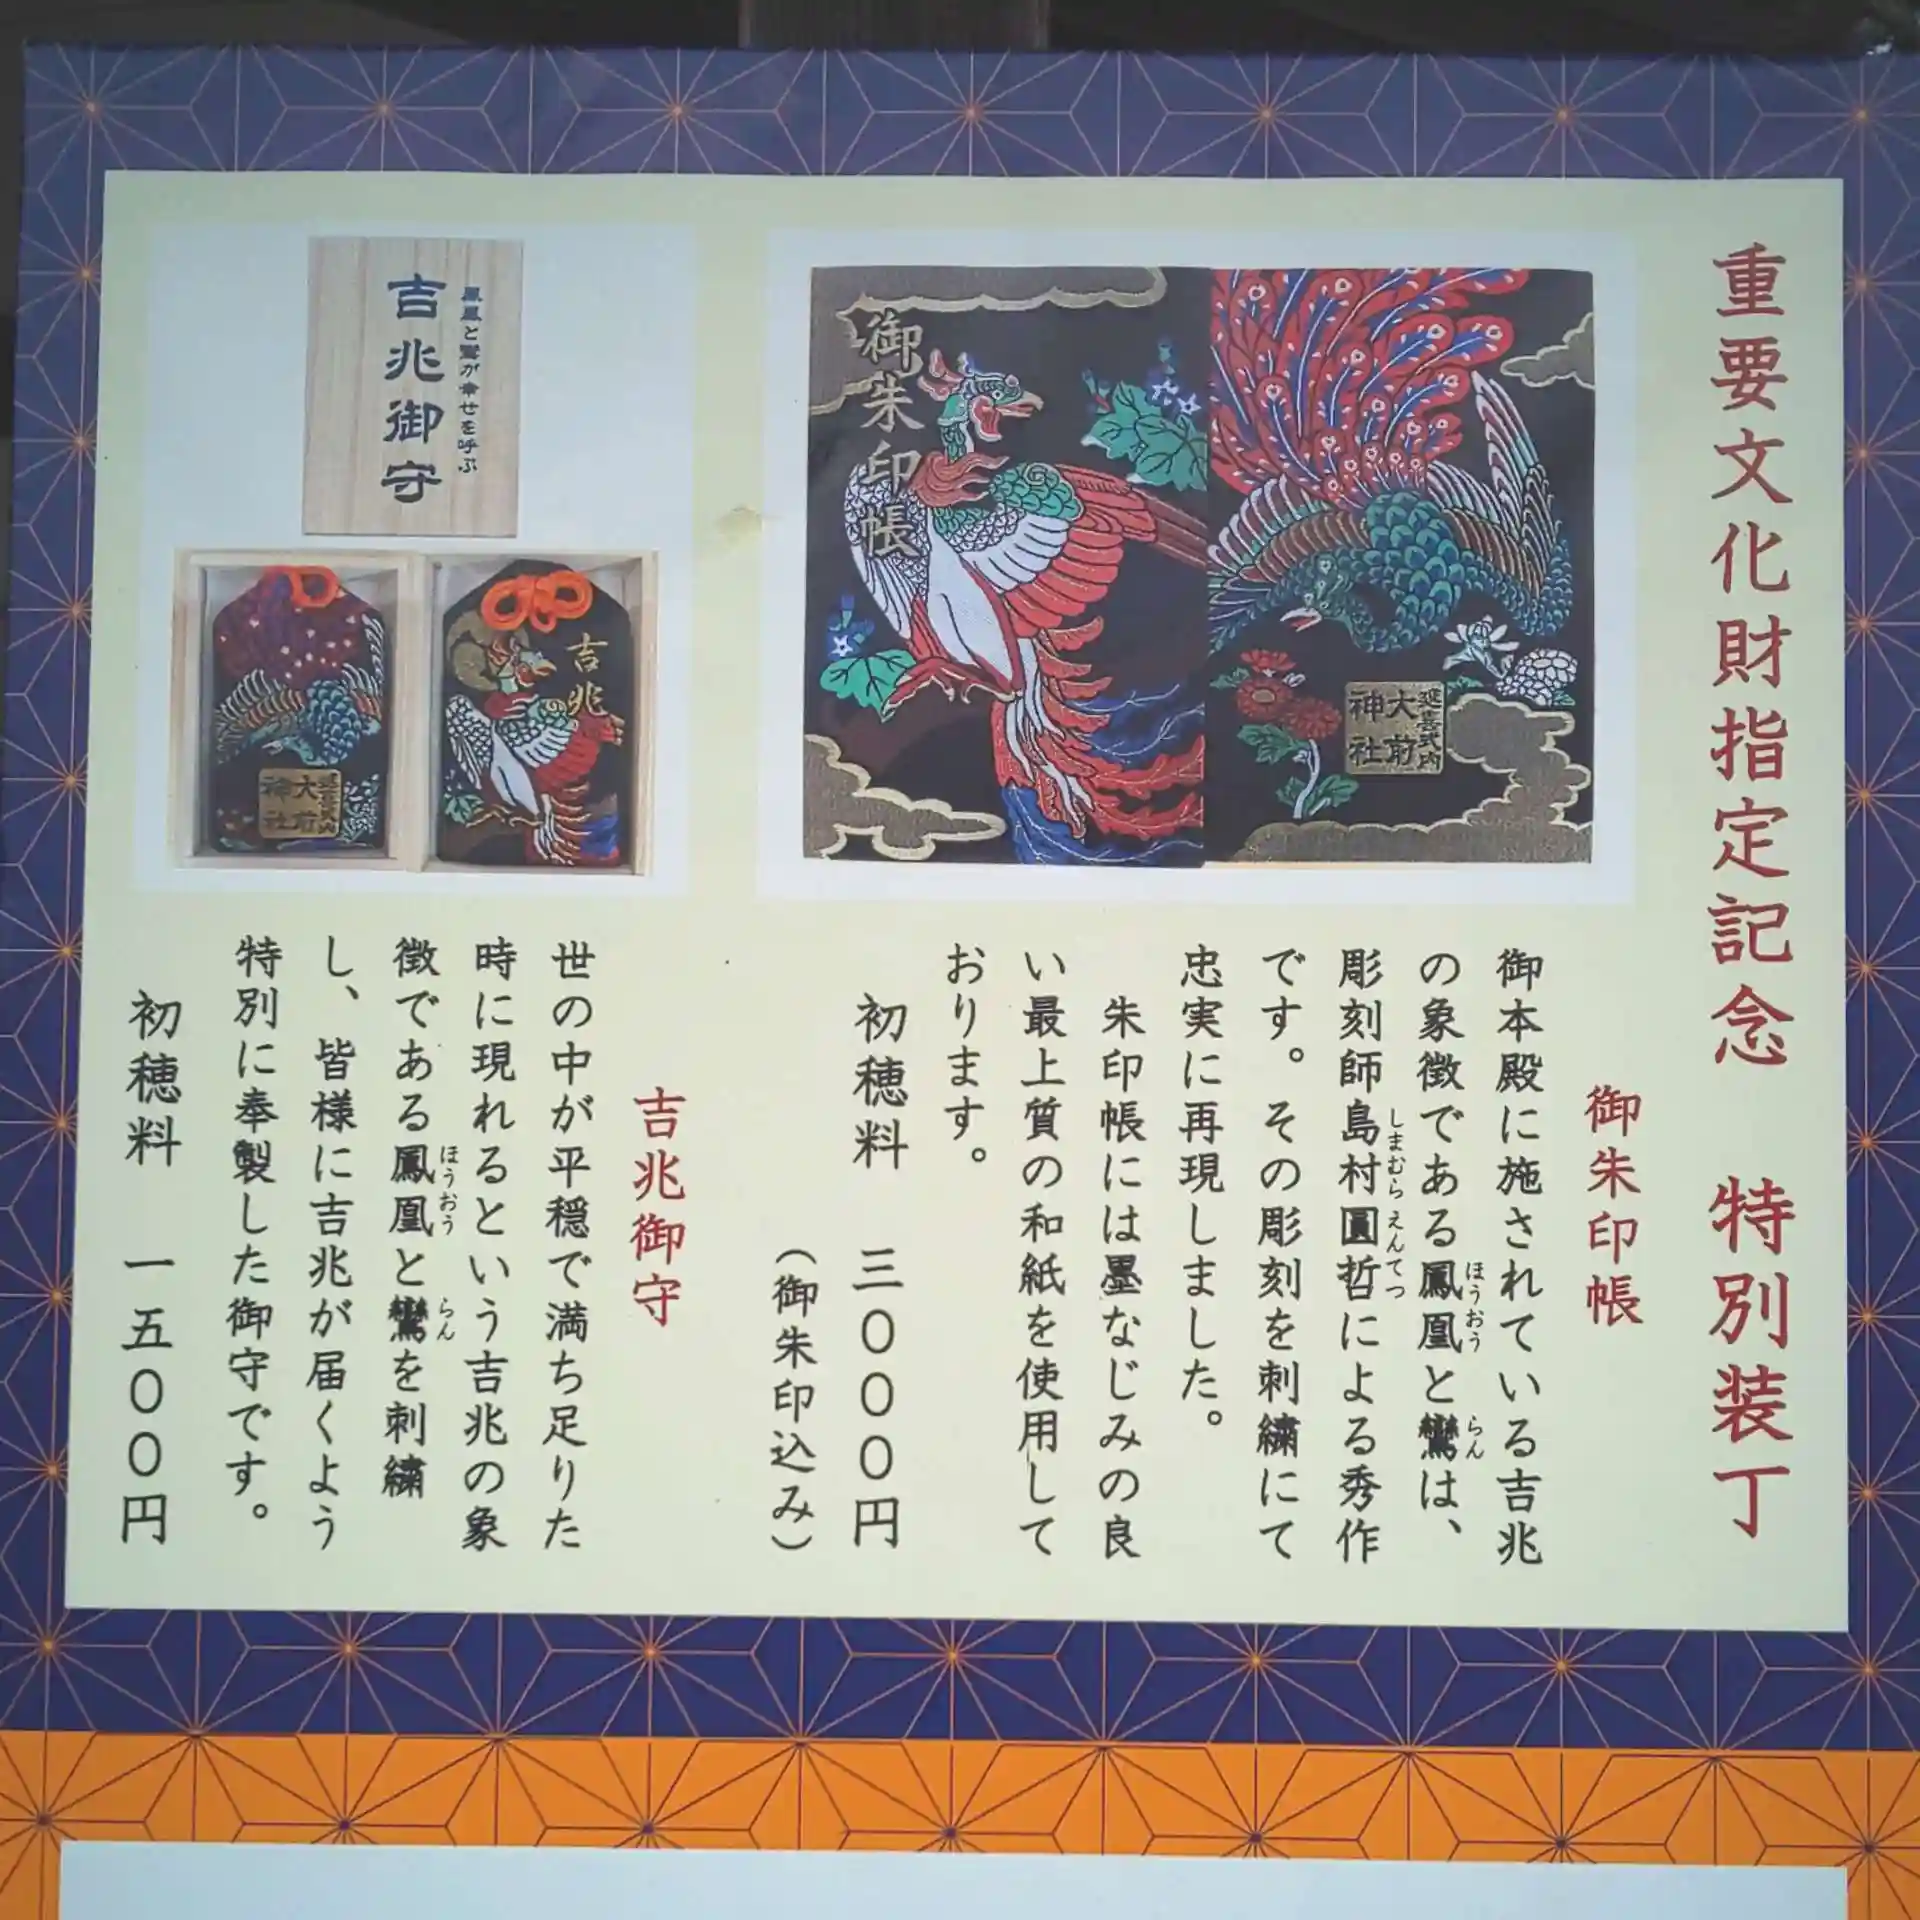 重要文化財指定記念　特別装丁
御朱印帳
延喜式内
大前
神社
御朱印帳
御本殿に施されている吉兆
の象徴である鳳凰と鸞は、
ほうおう
らん
彫刻師島村圓哲による秀作
しまむら
えんてつ
です。その彫刻を刺繍にて
忠実に再現しました。
朱印帳には墨なじみの良
い最上質の和紙を使用して
おります。
初穂料　三〇〇〇円
（御朱印込み）
鳳凰と鸞が幸せを呼ぶ
吉兆御守
吉兆
延喜式内
大前
神社
吉兆御守
世の中が平穏で満ち足りた
時に現れるという吉兆の象
徴である鳳凰と鸞を刺繍
ほうおう
らん
し、皆様に吉兆が届くよう
特別に奉製した御守です。
初穂料　一五〇〇円